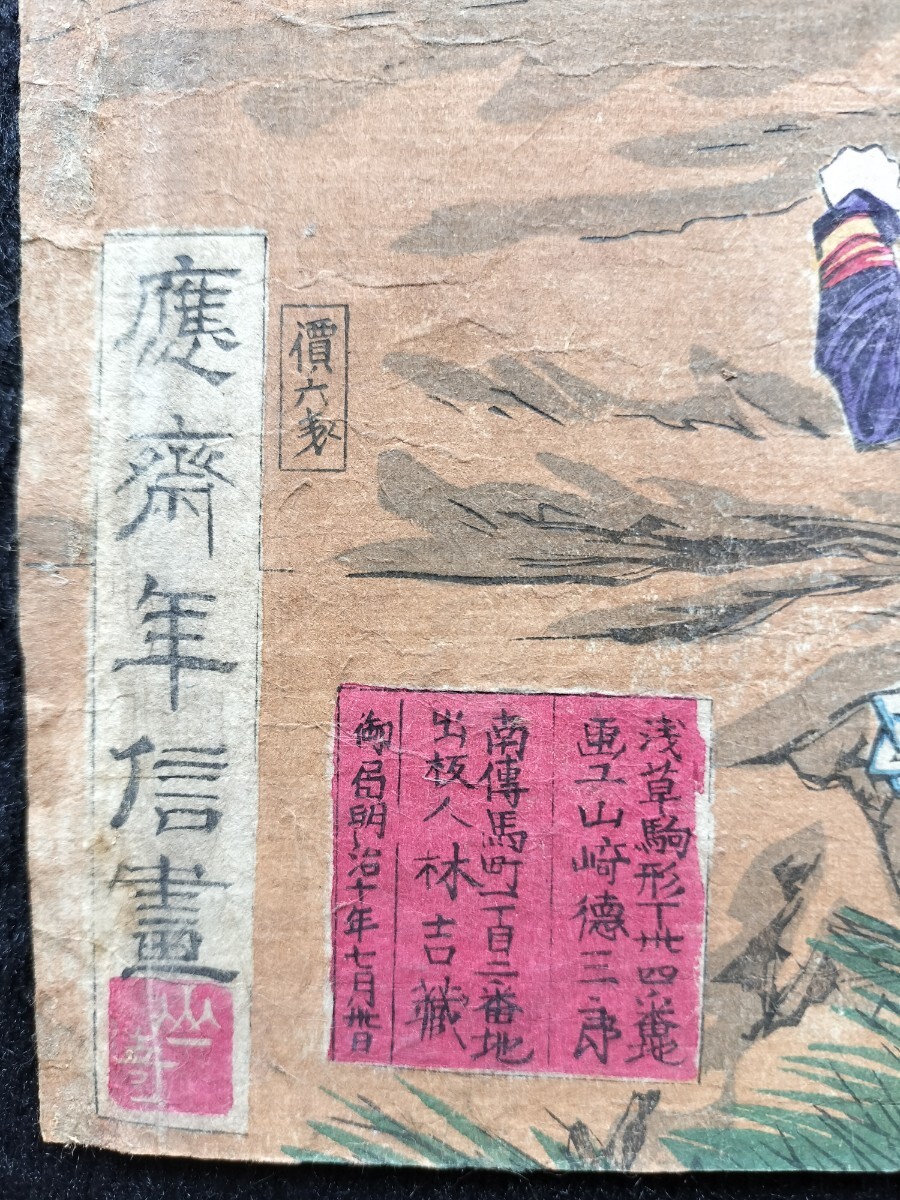 浅草駒形丁卅四番地
画工山崎德三郎
南傳馬町一丁目二番地
出板人林吉藏
御届明治十年七月卅日
價六戋
應齋年信畫